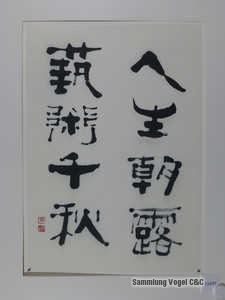 人生朝露
藝術千秋
Sammlung Vogel C&C